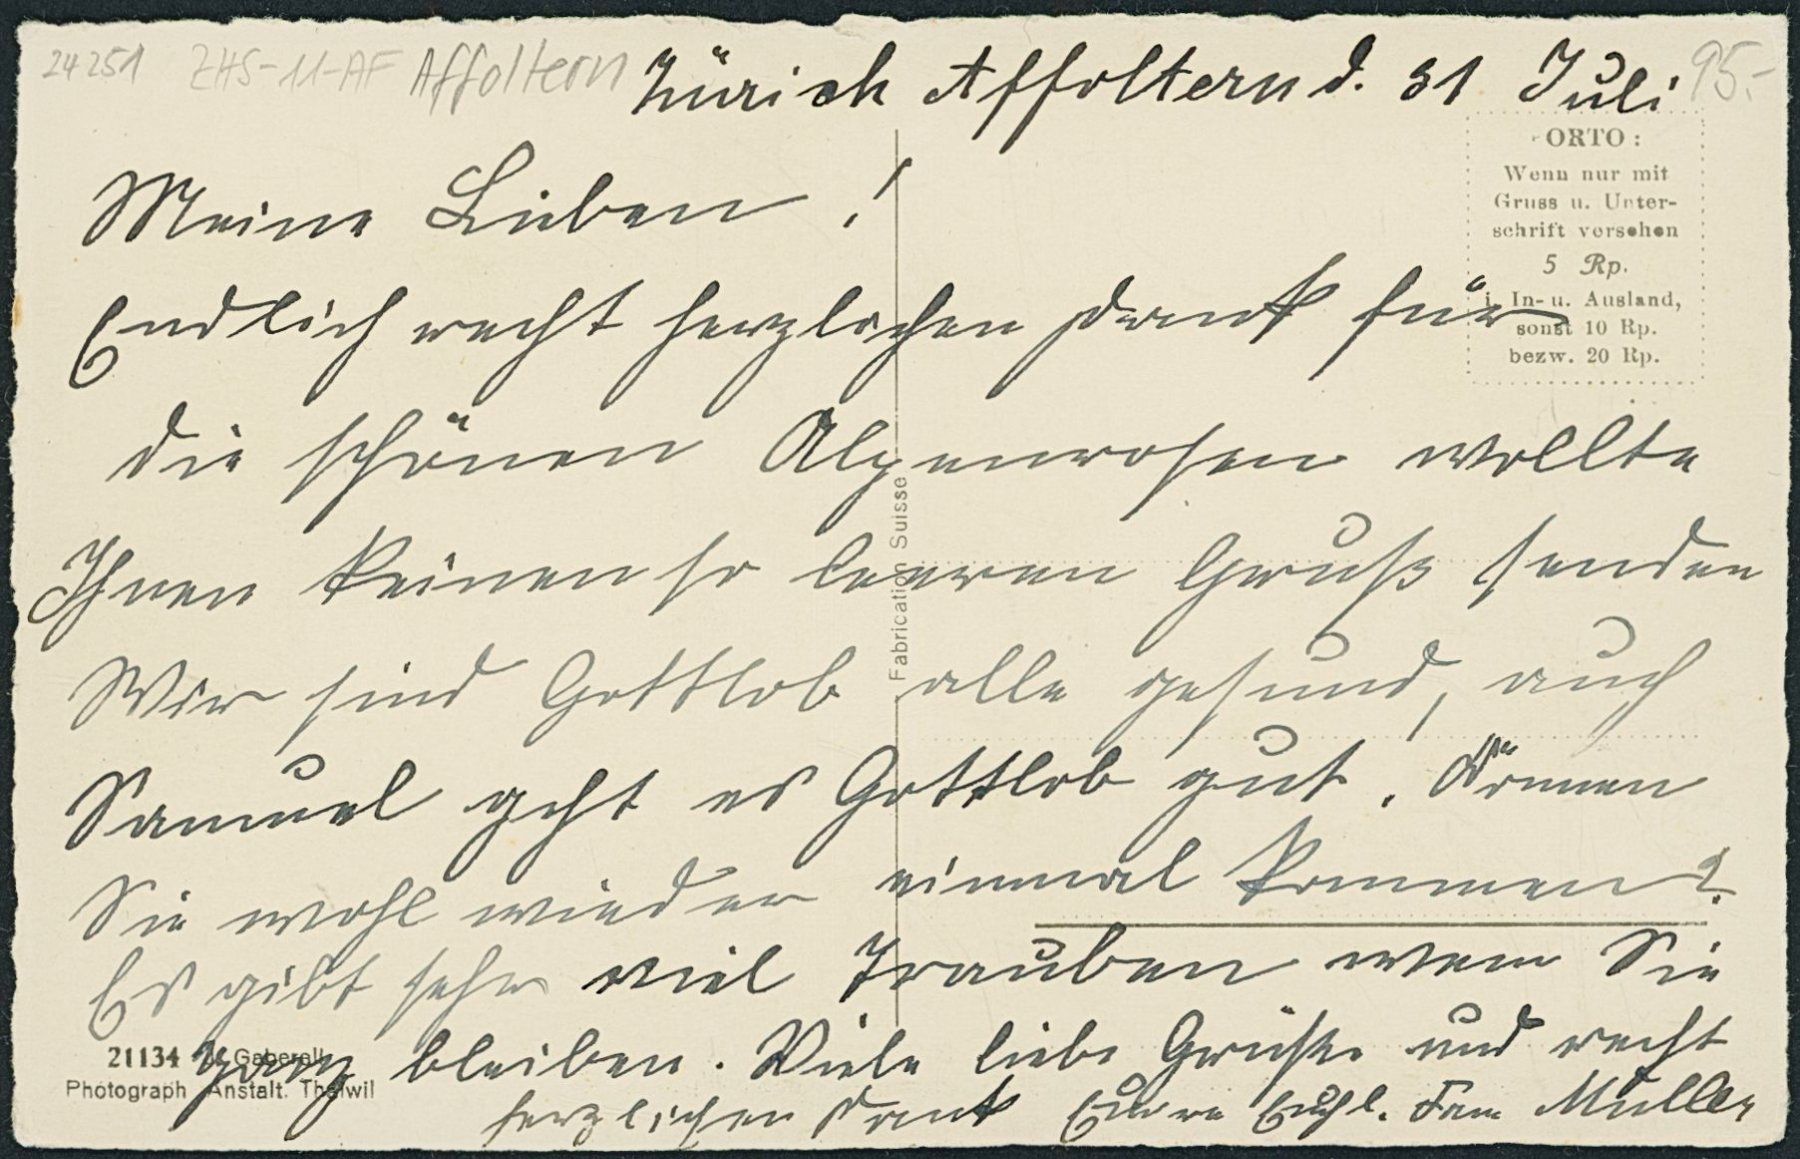 24251 ZHS-11-AF Affoltern
Zürich Affoltern d. 31 Juli
95.-
PORTO:
Wenn nur mit
Gruss u. Unter-
schrift versehen
5 Rp.
i. In- u. Ausland,
sonst 10 Rp.
bezw. 20 Rp.
Meine Lieben!
Endlich recht herzlichen Dank für
die schönen Alpenrosen wollte
Ihnen keinen so leeren Gruß senden
Wir sind Gottlob alle gesund, auch
Samuel geht es Gottlob gut. Können
Sie wohl wieder einmal kommen?
Es gibt sehr viel Trauben wenn Sie
ganz bleiben. Viele liebe Grüße und recht
herzlichen Dank Eure Fam Müller
Fabrication Suisse
21134 Gaberell
Photograph Anstalt. Thalwil